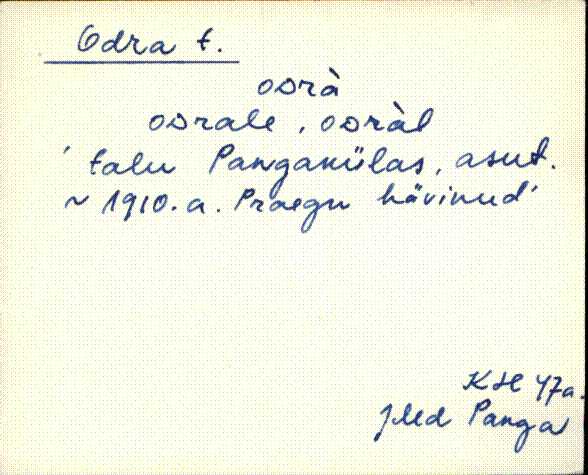 Odra t.
oᴅrà
oᴅrale, oᴅràl
' talu Pangakülas, asut.
~ 1910. a. Praegu hävinud'
47a.
Panga